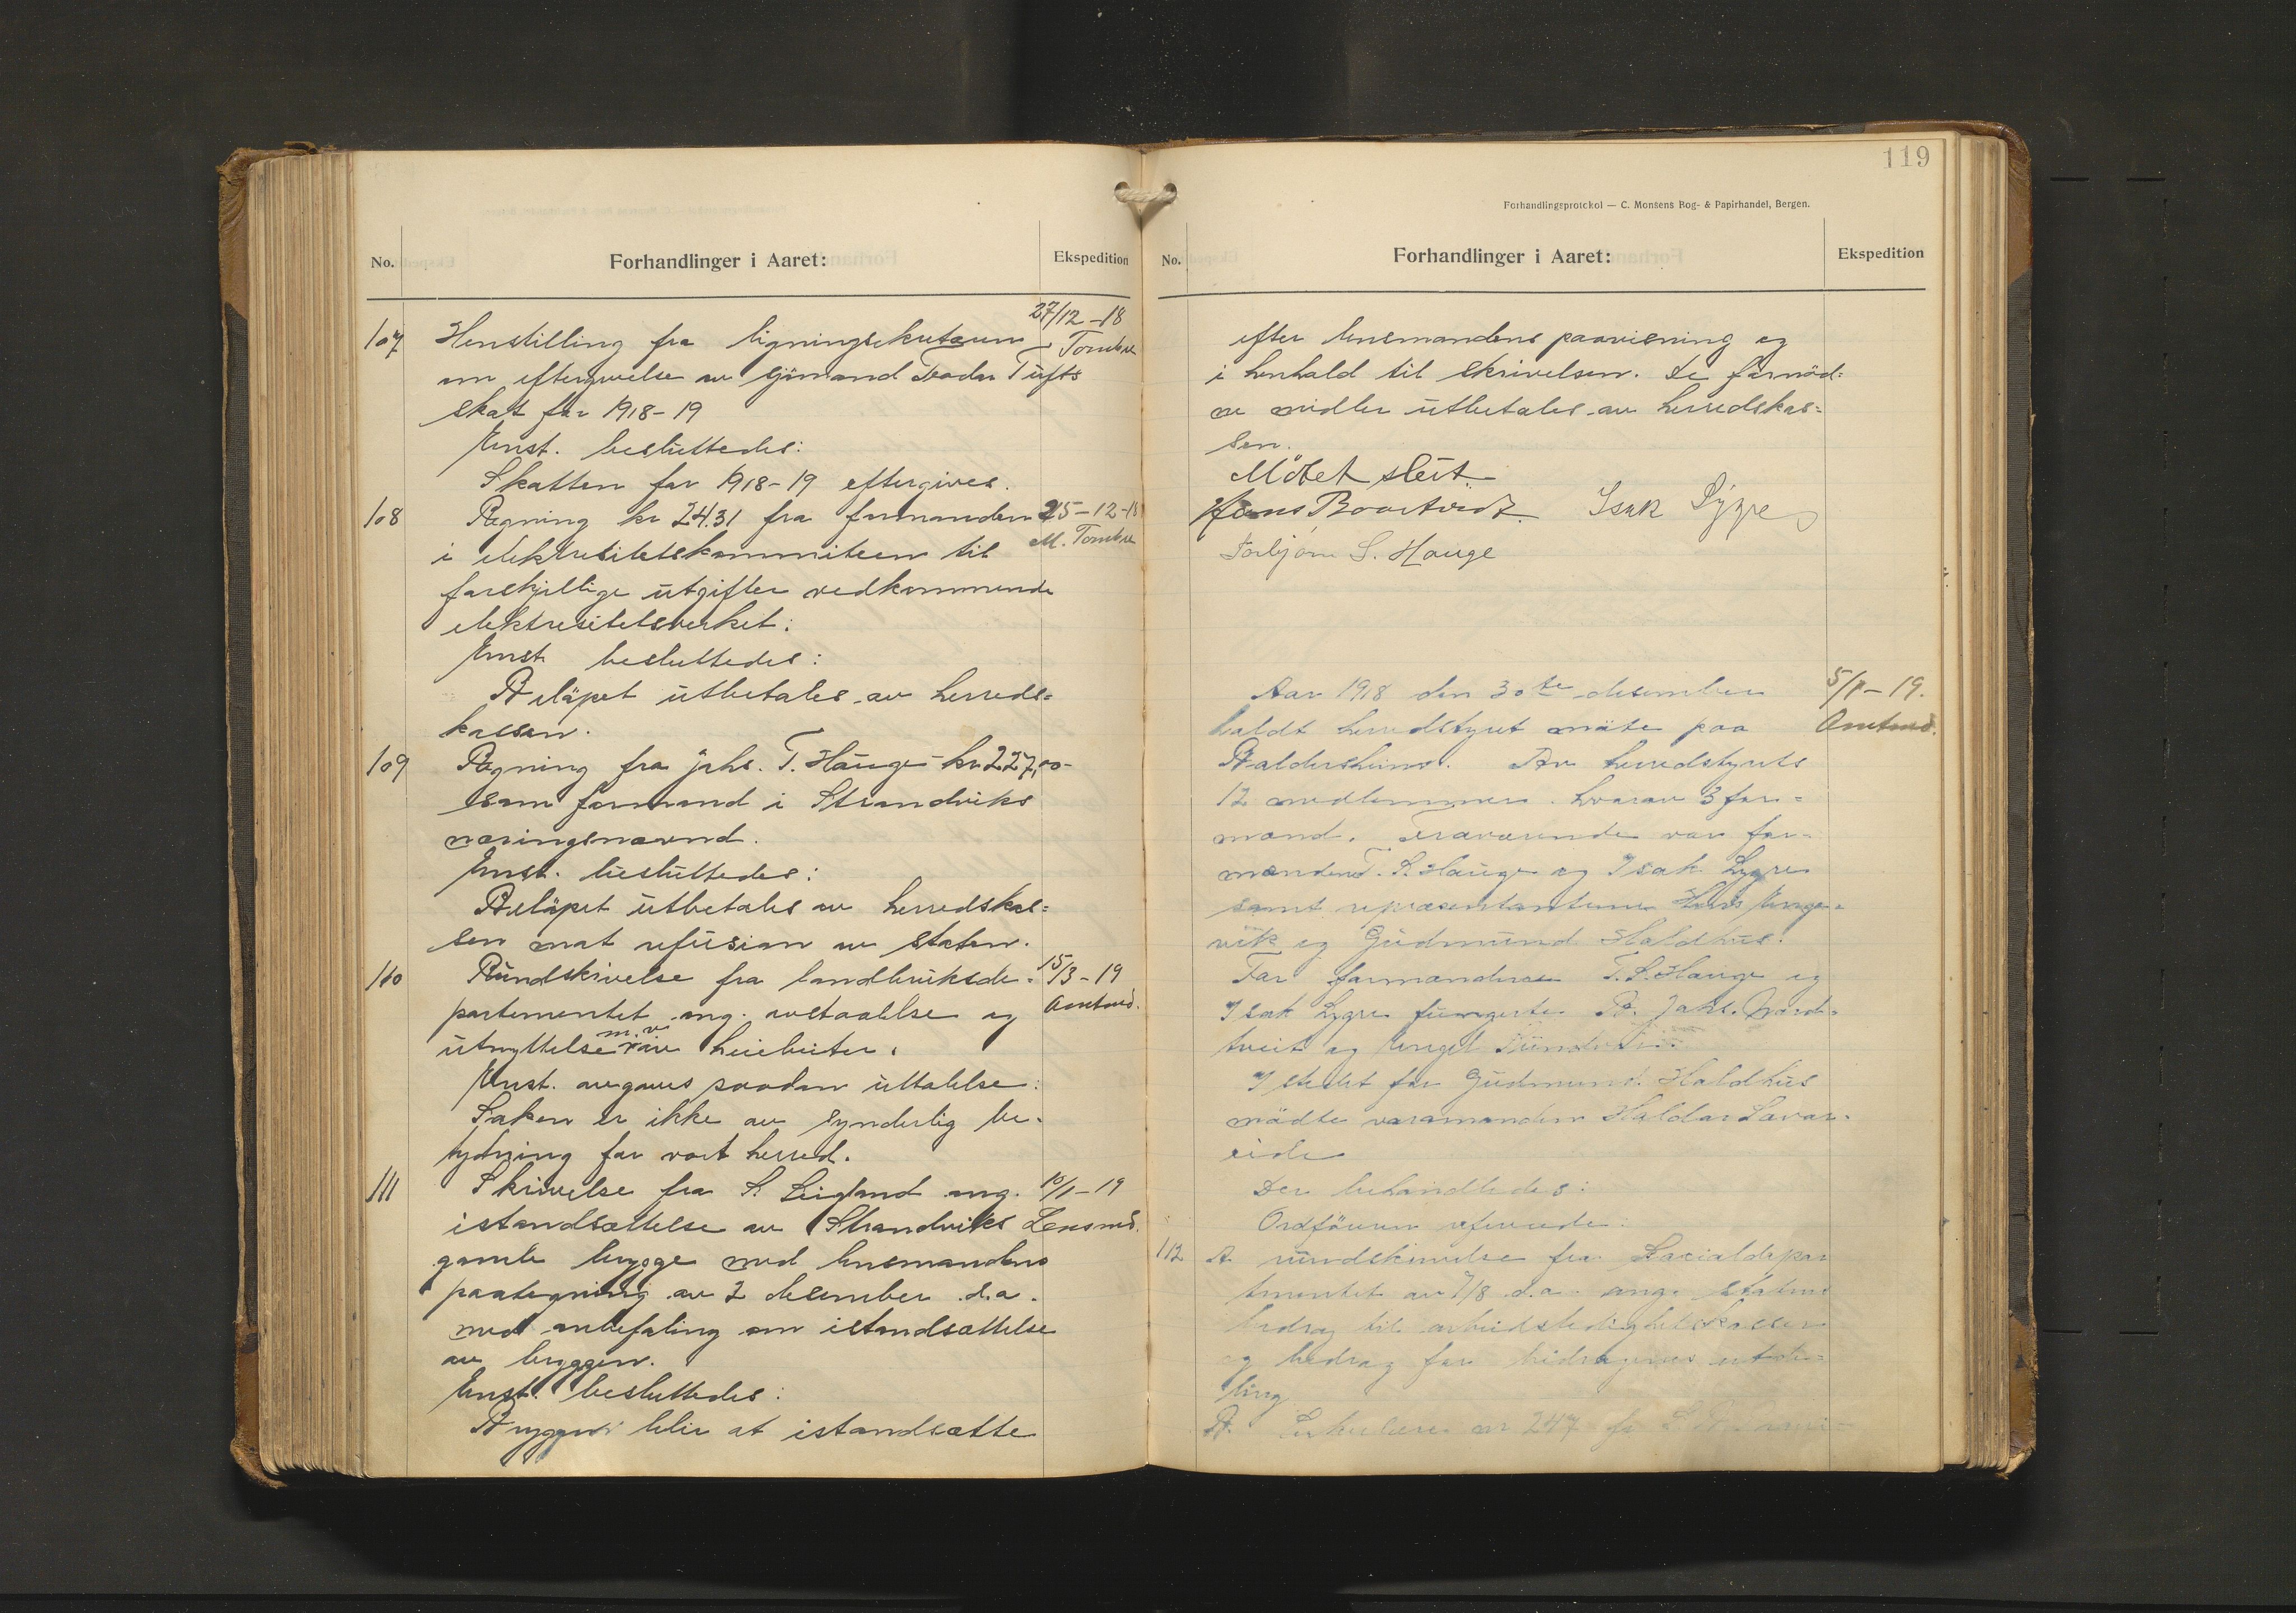 No.
Forhandlinger i Aaret:
Ekspedition
107
Henstilling fra ligningsekretæren
27/12-18
Tombre
om eftergivelse av sjömand Teodor Tufts
skat for 1918-19
Enst. besluttedes:
Skatten for 1918-19 eftergives.
108
Regning kr 24.31 fra formanden
25-12-18
M. Tombre
i elektresitetskommiteen til
forskjellige utgifter vedkommende
elektresitetsverket:
Enst besluttedes:
Belöpet utbetales av herreds=
kassen.
109
Regning fra johs. T. Hauge kr 227,00
som formand i Strandviks
næringsnævnd.
Enst. besluttedes:
Belöpet utbetales av herredskas=
sen mot refusion av staten.
110
Rundskrivelse fra landbruksde=
15/3-19
Amtmd.
partementet ang. avstaaelse og
utnyttelse m.v. av heiebeiter.
Enst. avgaves saadan uttalelse:
Saken er ikke av synderlig be-
tydning for vort herred.
111
Skrivelse fra S. Leigland ang.
10/1-19
Lensmd.
istandsættelse av Strandviks
gamle brygge med lensmandens
paategning av 2 desember d.a.
med anbefaling om istandsættelse
av bryggen.
Enst. besluttedes:
Bryggen blir at istandsætte
119
Forhandlingsprotokol — C. Monsens Bog- & Papirhandel, Bergen.
No.
Forhandlinger i Aaret:
Ekspedition
efter lensmandens paavisning og
i henhold til skrivelsen. De fornöd=
ne midler utbetales av herredskas=
sen.
Mötet slut
Hans Boortveit Isak Lygre
Torbjörn S. Hauge
Aar 1918 den 30te desember
5/1-19.
Amtmd.
holdt herredstyret möte paa
Baldersheim. Av herredstyrets
12 medlemmer hvorav 3 for=
mænd. Fraværende var for-
mændene T. S. Hauge og Isak Lygre
samt repræsentantene Hans Enge=
vik og Gudmund Haldhus.
For formændene T. S. Hauge og
Isak Lygre fungerte B. Johs. Nord=
tveit og Engel
I stedet for Gudmund Haldhus
mödte varamanden Haldor Lavar=
eide
Der behandledes:
Ordföreren refererede:
112
A rundskrivelse fra Socialdepar
tmentet av 7/8 d.a. ang. statens
bedrag til arbeidsledighetskasser
og bedrag for bidragenes utde=
ling
B. Cirkulære nr 247 fr